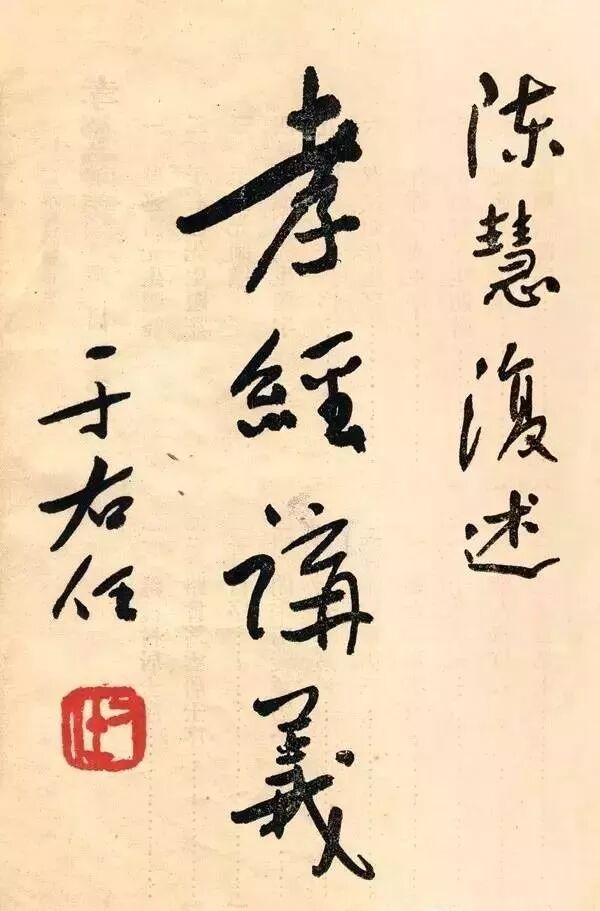 陈慧復述
孝經講義
于右任